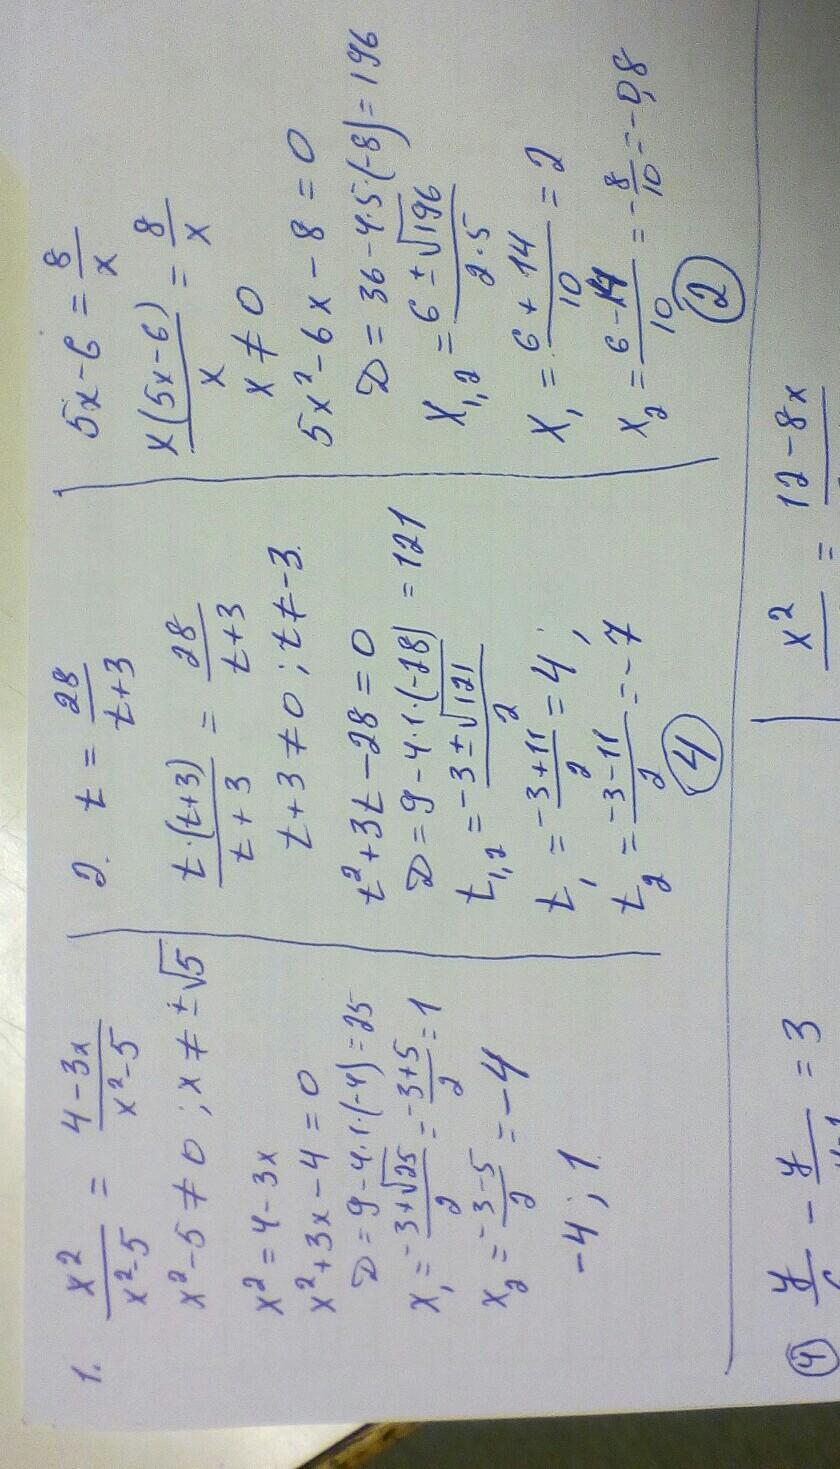 1. x²/(x²-5) = (4-3x)/(x²-5)
x²-5≠0; x≠±√5
x²=4-3x
x²+3x-4=0
D=9-4·1·(-4)=25
x₁=(-3+√25)/2=(-3+5)/2=1
x₂=(-3-5)/2=-4
-4; 1
2. t=28/(t+3)
t·(t+3)/(t+3) = 28/(t+3)
t+3≠0; t≠-3
t²+3t-28=0
D=9-4·1·(-28)=121
t₁,₂=(-3±√121)/2
t₁=(-3+11)/2=4;
t₂=(-3-11)/2=-7
4
5x-6=8/x
x(5x-6)/x=8/x
x≠0
5x²-6x-8=0
D=36-4·5·(-8)=196
x₁,₂=(6±√196)/(2·5)
x₁=(6+14)/10=2
x₂=(6-14)/10=-8/10=-0,8
2
4 y - y = 3
x² = 12-8x